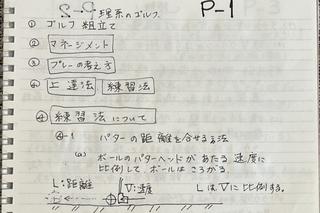 理系のゴルフ P-1
① ゴルフ 組立て
② マネージメント
③ プレーの考え方
④ 上達法 練習法
④ 練習法について
④-1 パターの距離を合せる方法
(a) ボールのパターヘッドがあたる速度に
比例してボールはころがる。
L:距離 V:速度 LはVに比例する。